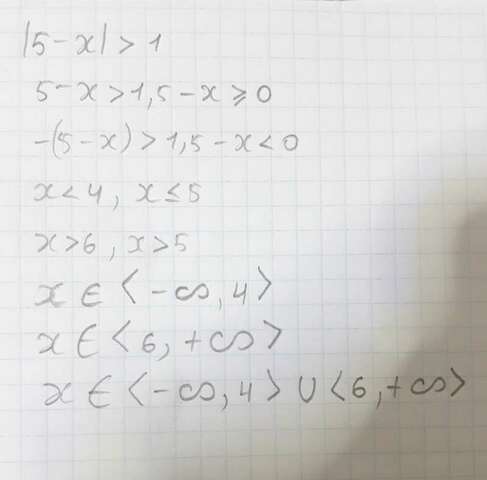 |5-x|>1
5-x>1,5-x⩾0
-(5-x)>1,5-x<0
x<4, x≤5
x>6, x>5
x∈<-∞,4>
x∈<6,+∞>
x∈<-∞,4>∪<6,+∞>